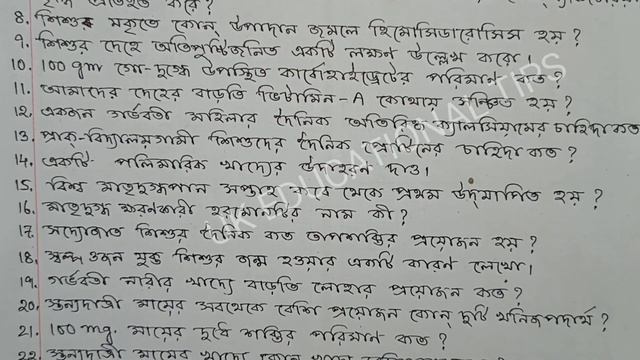 ৮. শিশুর যকৃতে কোন্ উপাদান জমলে হিমোসিডারোসিস হয় ?
৯. শিশুর দেহে অতিপুষ্টিজনিত একটি লক্ষণ উল্লেখ করো।
১০. 100 gm গো-দুগ্ধে উপস্থিত কার্বোহাইড্রেটের পরিমান কত ?
১১. আমাদের দেহের বাড়তি ভিটামিন-A কোথায় সঞ্চিত হয় ?
১২. একজন গর্ভবতী মহিলার দৈনিক অতিরিক্ত ক্যালসিয়ামের চাহিদা কত
১৩. প্রাক্-বিদ্যালয়গামী শিশুদের দৈনিক প্রোটিনের চাহিদা কত ?
১৪. একটি পলিমারিক খাদ্যের উদাহরন দাও।
১৫. বিশ্ব মাতৃদুগ্ধপান সপ্তাহ কবে থেকে প্রথম উদ্‌যাপিত হয় ?
১৬. মাতৃদুগ্ধ ক্ষরণকারী হরমোনটির নাম কী ?
১৭. সদ্যোজাত শিশুর দৈনিক কত তাপশক্তির প্রয়োজন হয় ?
১৮. স্বল্প ওজন যুক্ত শিশুর জন্ম হওয়ার একটি কারন লেখো।
১৯. গর্ভবতী নারীর খাদ্যে বাড়তি লোহার প্রয়োজন কত ?
২০. স্তন্যদাত্রী মায়ের সবথেকে বেশি প্রয়োজন কোন্ দুটি খনিজপদার্থ ?
২১. 100 mg. মায়ের দুধে শক্তির পরিমান কত ?
২২. স্তন্যদাত্রী মায়ের খাদ্যে কোন্
UK EDUCATIONAL TIPS